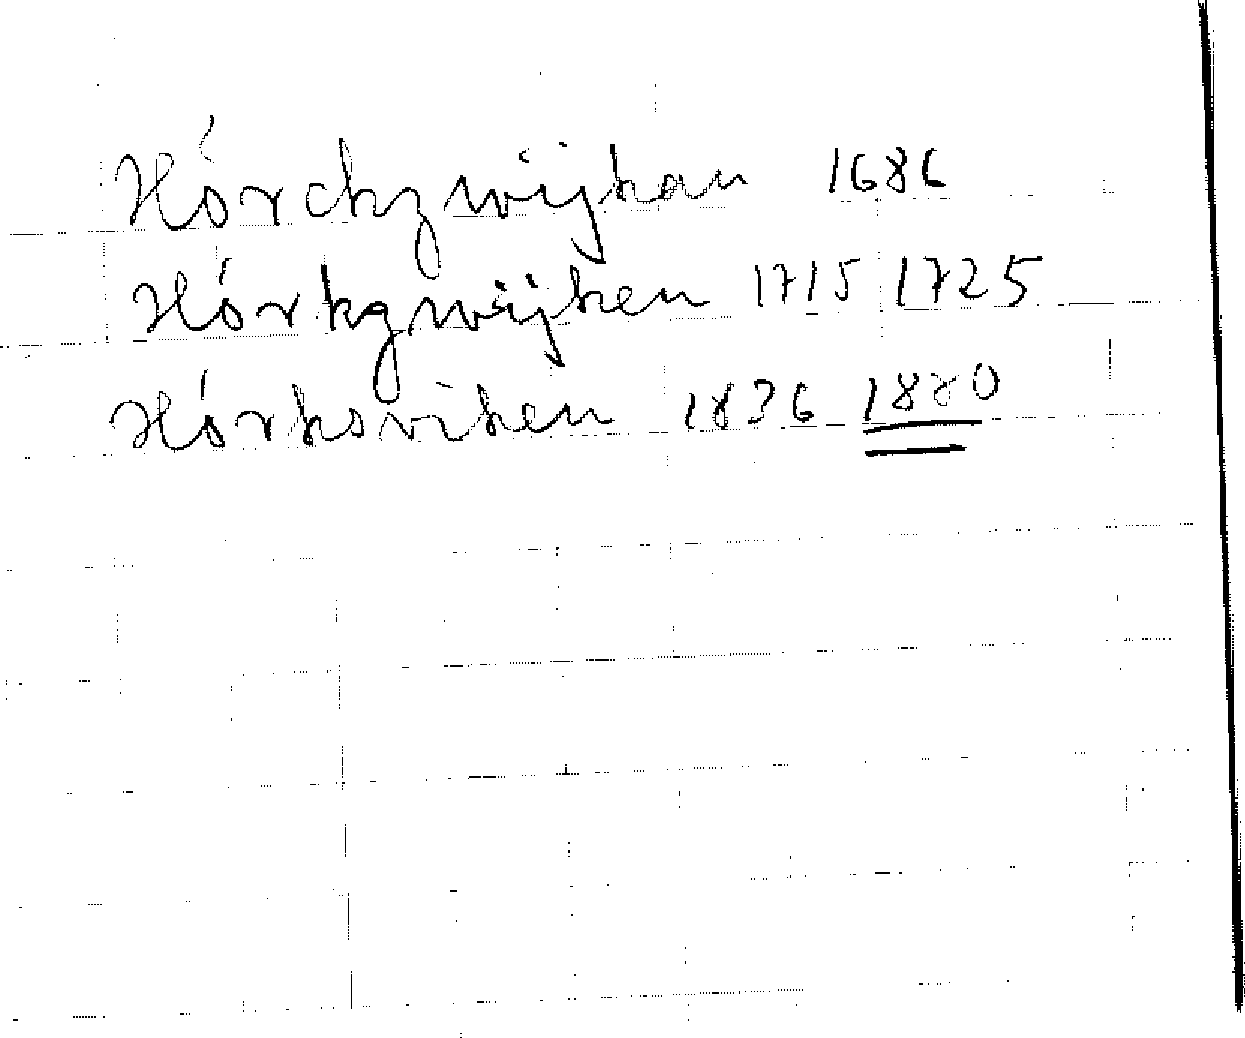 Hórchzwijkan 1686
Hórkzwijken 1715 1725
Hórksviken 1836 1880